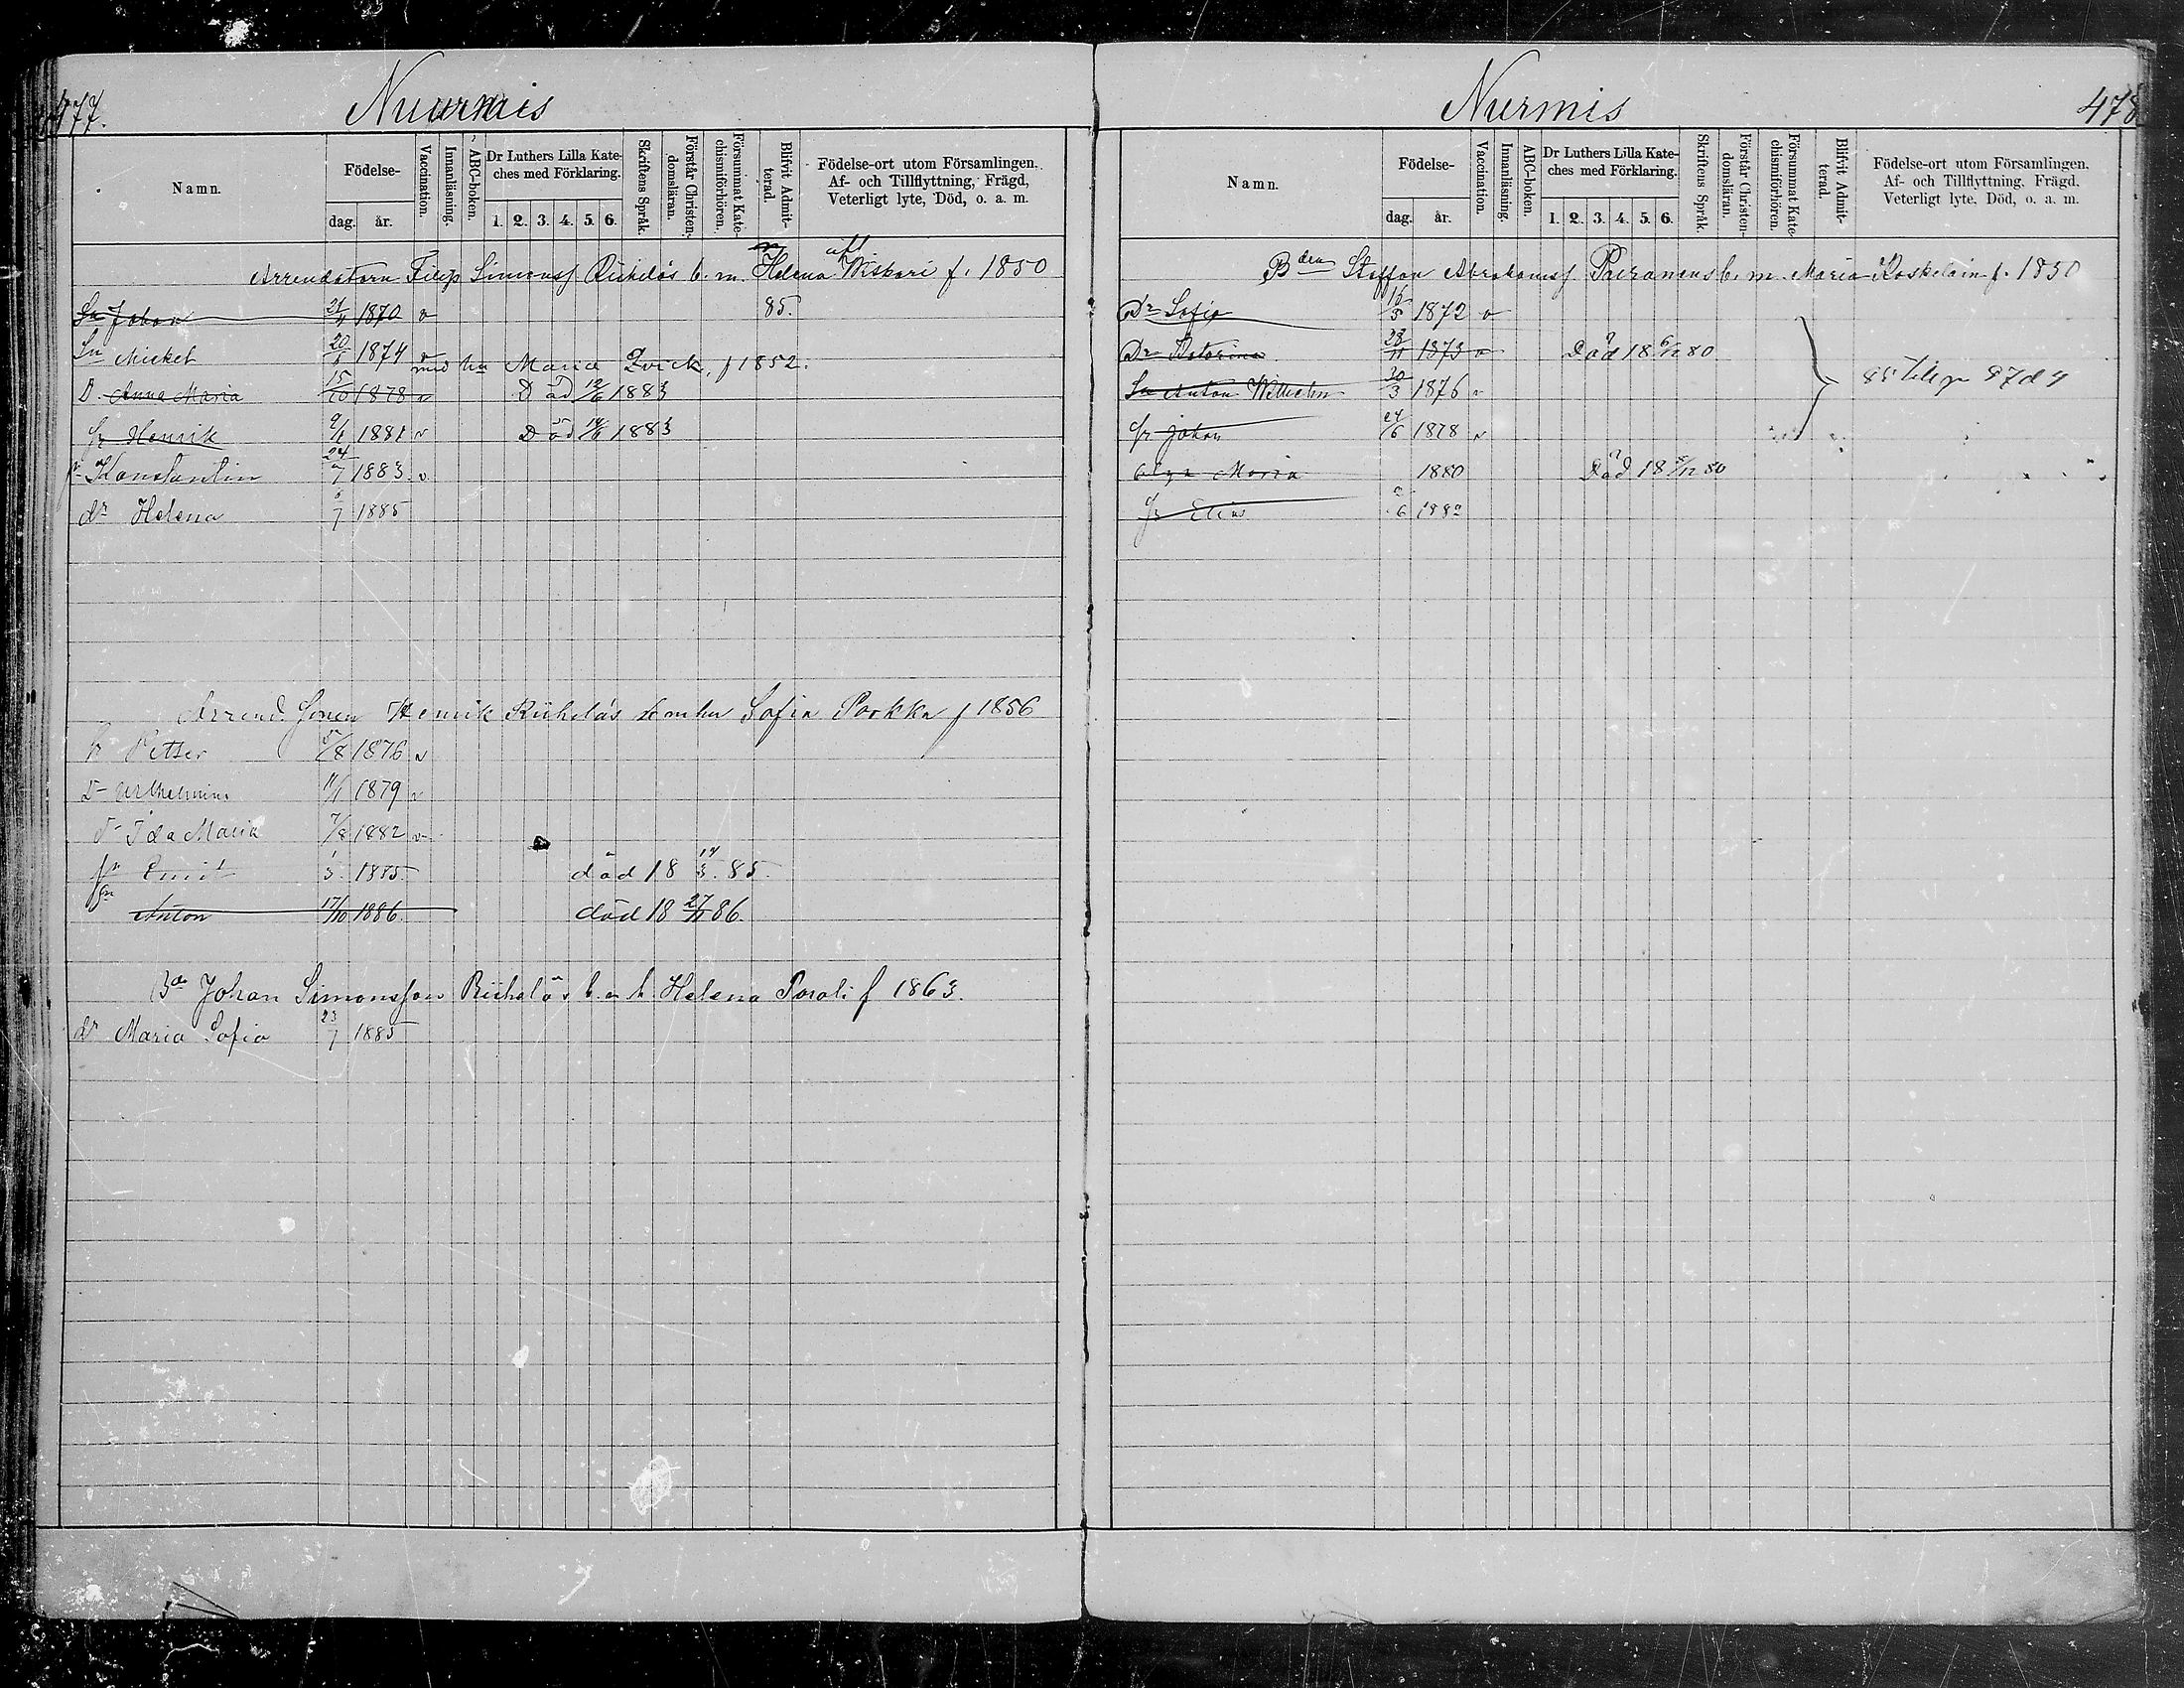 477.
Nuurmis
Namn.
Födelse-
dag. år.
Vaccination.
Innanläsning.
ABC-boken.
Dr Luthers Lilla Kate-
ches med Förklaring.
1. 2. 3. 4. 5. 6.
Skriftens Språk.
Förstår Christen-
domsläran.
Försummat Kate-
chismiförhören.
Blifvit Admit-
terad.
Födelse-ort utom Församlingen.
Af- och Tillflyttning, Frägd,
Veterligt lyte, Död, o. a. m.
Arrendatorn Filip Simonss Riiheläs b. m. Helena Wiskari f. 1850
Sn Johan 21/11 1870 v 85.
Sn Mickel 20/8 1874 v
med hu Maria f 1852.
D. Anna Maria 15/10 1878 v Död 12/6 1883
Henrik 9/1 1881 v Död 14/6 1883
Konstantin 24/7 1883 v
dr Helena 6/7 1885
Arrend. Henrik Riiheläs Sofia Porkka f 1856
Petter 5/8 1876 v
D Wilhelmina 11/1 1879 v
d Ida Maria 7/8 1882 v
sn Emil 1/3 1885 död 18 14/3 85.
sn Anton 17/10 1886. död 18 27/11 86.
Bdn Johan Simonsson Riiheläs Helena Porali f 1863.
dr Maria Sofia 23/7 1885
Nurmis
478
Namn.
Födelse-
dag. år.
Vaccination.
Innanläsning.
ABC-boken.
Dr Luthers Lilla Kate-
ches med Förklaring.
1. 2. 3. 4. 5. 6.
Skriftens Språk.
Förstår Christen-
domsläran.
Försummat Kate-
chismiförhören.
Blifvit Admit-
terad.
Födelse-ort utom Församlingen.
Af- och Tillflyttning. Frägd.
Veterligt lyte, Död, o. a. m.
Bden Staffan Abrahamss Pairanens b. m. Maria Koskelain f. 1850
Dr Sofia 16/5 1872 v
Dr Katarina 28/11 1873 v Död 18 6/12 80
Sn Anton Wilhelm 30/3 1876 v
Johan 24/6 1878 v
Maria 1880 Död 18 8/12 80
Elias